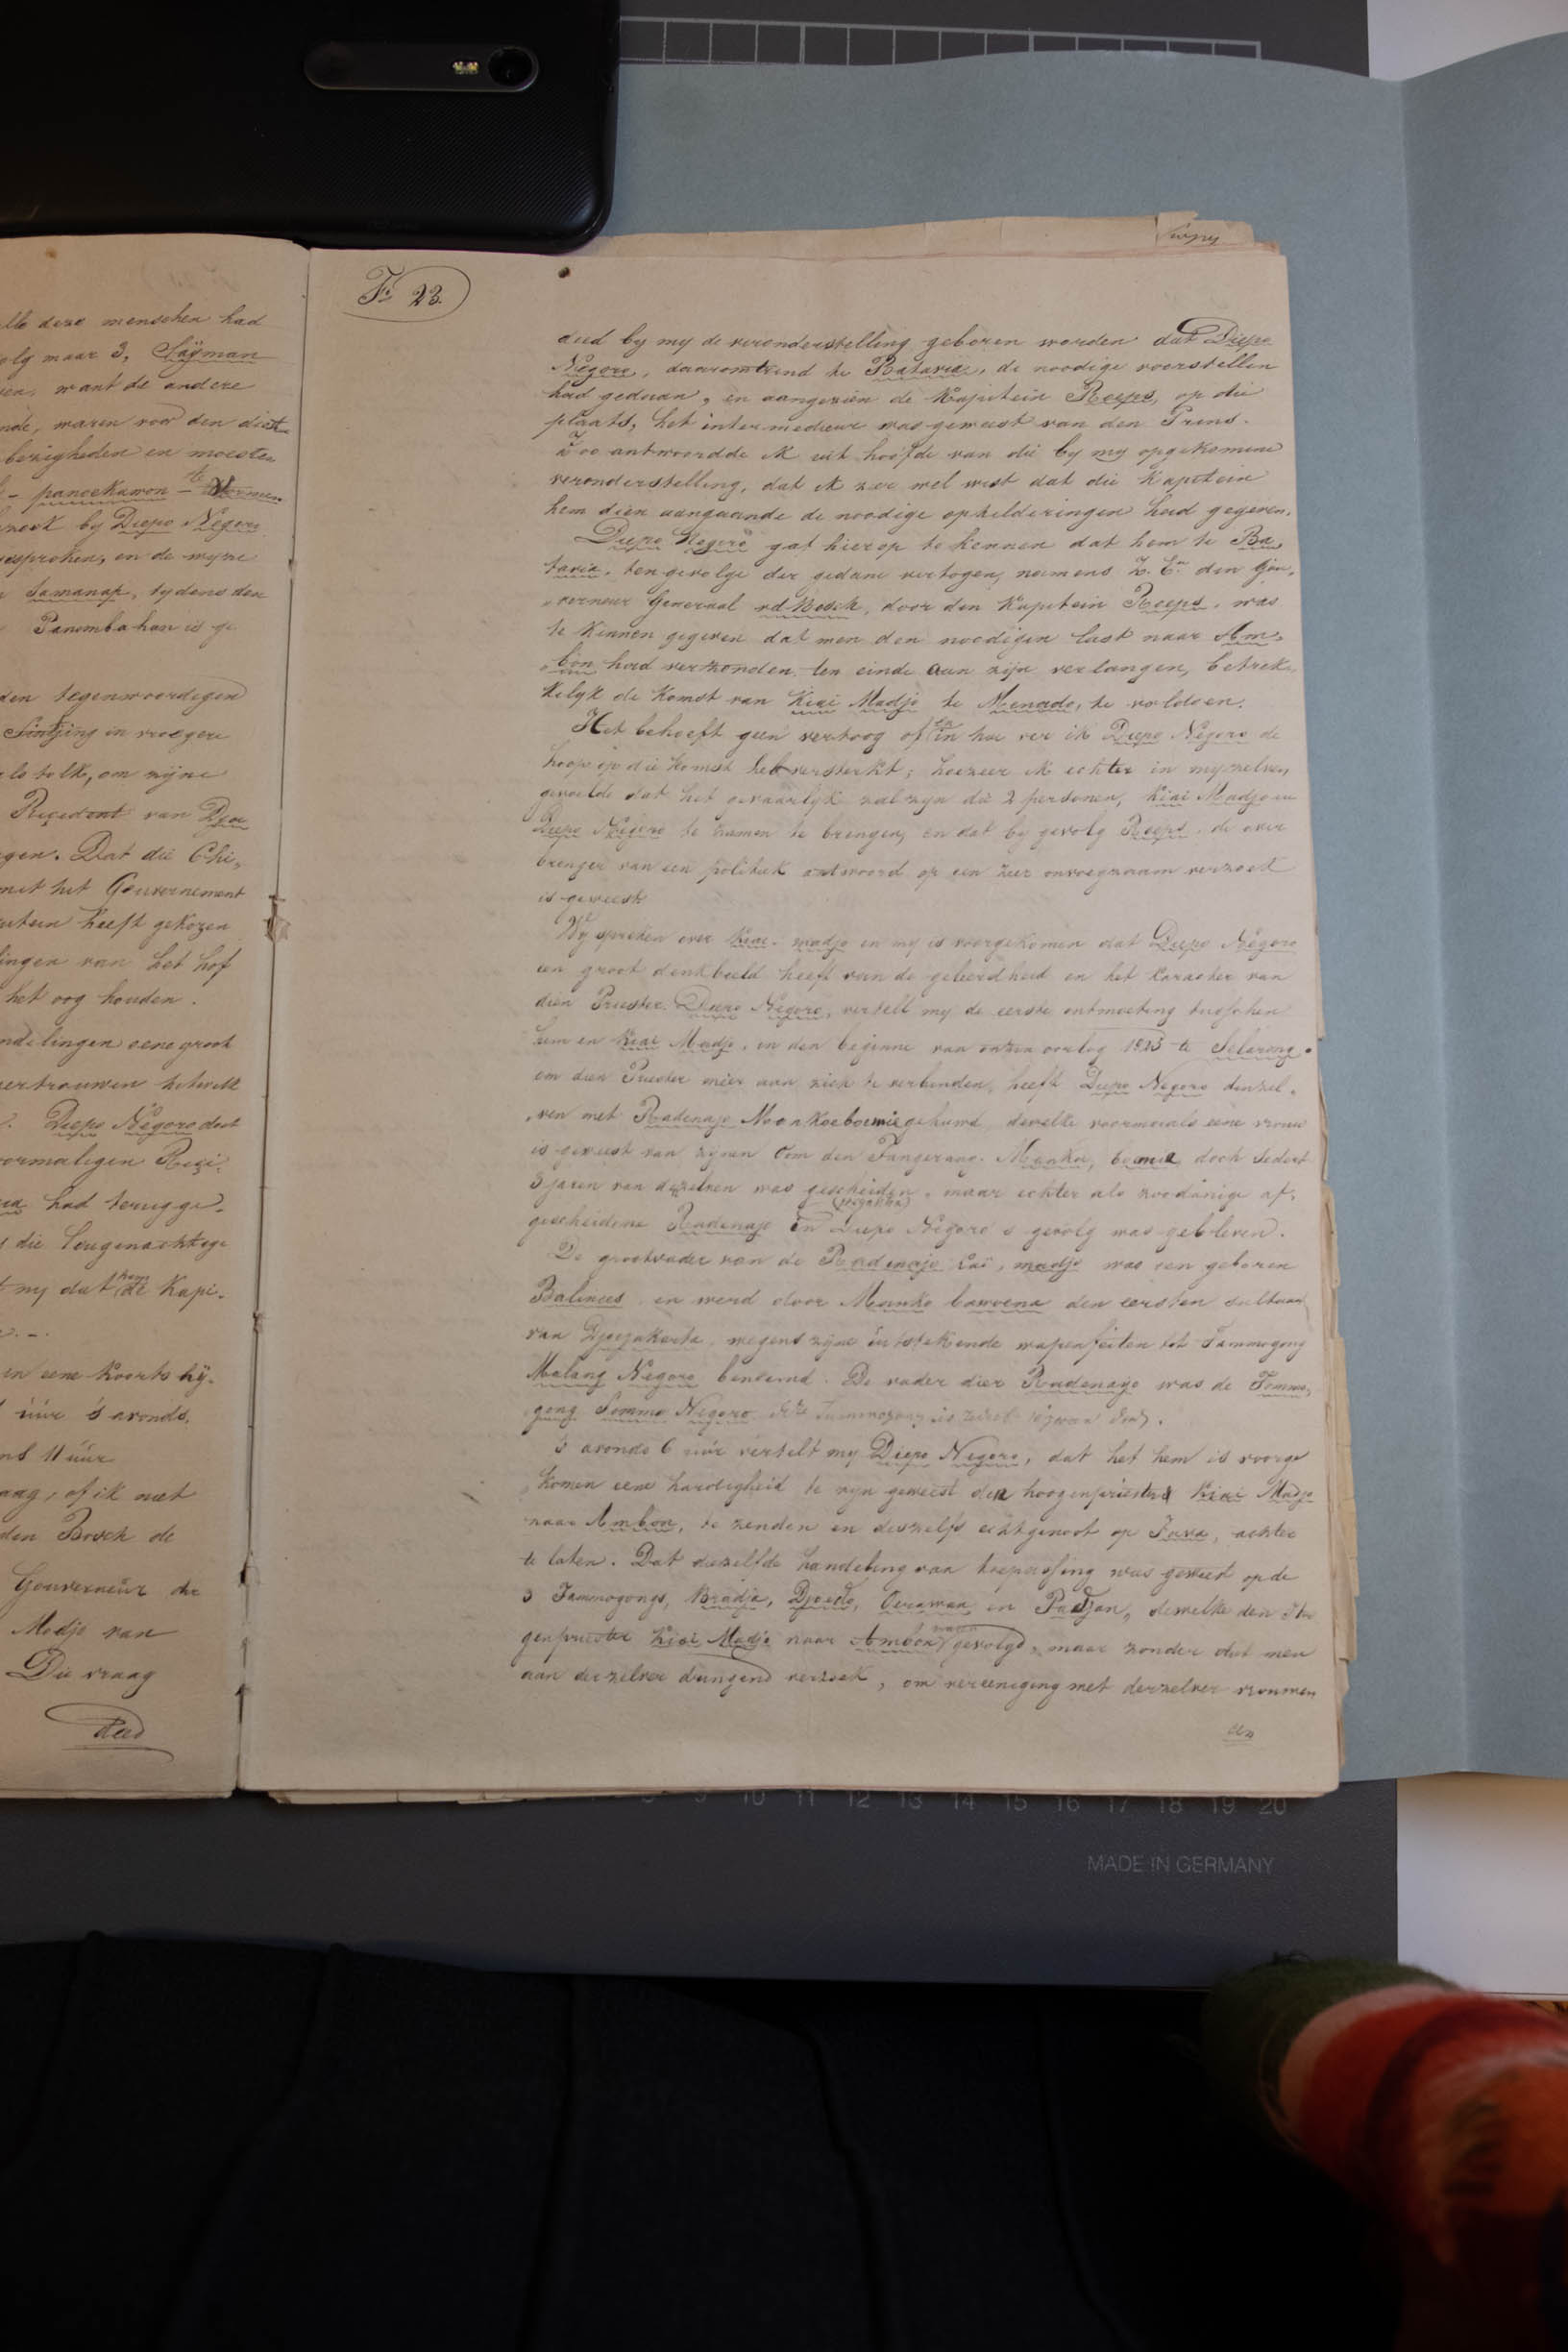 lle deze menschen had
olg maar 3, Saÿman
want de andere
nde, waren voor den
bezigheden en moesten
- panoekawon - te
zoek by Diepo Negoro
esproken, en de wyze
Samanap, tydens den
Panembahan is ge
den tegenwoordigen
Sintjing in vroegere
als tolk, om zijne
Resident van
gen. Dat die Chi„
met het Gouvernement
heeft gekozen
lingen van het hof
het oog houden.
ndelingen eene groot
vertrouwen hetwelk
Diepo Negoro doet
voormaligen Resi.
had terugge„
die leugenachtige
my dat hem de Kapi„
in eene koorts hij„
uúr s avonds,
11 uúr
aag, of ik niet
den Bosch de
Gouverneur de
Modjo van
Die vraag
deed
F: 23.
deed by my de veronderstelling geboren worden dat Diepo
Negoro, daaromtrend te Batavia, de noodige voorstellen
had gedaan, en aangezien de Kapitein Roeps, op die
plaats, het intermedieur was geweest van den Prins.
Zoo antwoordde ik uit hoofde van die by my opgekomene
veronderstelling, dat ik zeer wel wist dat die Kapitein
hem dien aangaande de noodige ophelderingen had gegeven.
Diepo Negoro gaf hierop te kennen dat hem te Ba„
tavia, tengevolge der gedane vertogen, namens Z. En den Gou„
„verneur Generaal vd Bosch, door den Kapitein Roeps, was
te kennen gegeven dat men den noodigen last naar Am„
„bon had verzonden, ten einde aan zijn verlangen, betrek„
kelyk de komst van Kiai Madjo te Menado, te voldoen.
Het behoeft geen vertoog of en in hoe ver ik Diepo Negoro de
hoop op die komst heb versterkt; hoezeer ik echter in myzelven
gevoelde dat het gevaarlyk zal zyn die 2 personen, Kiai Madjo en
Diepo Negoro te zamen te brengen, en dat by gevolg Roeps, de over
brenger van een politiek antwoord op een zeer onvoegzaam verzoek
is geweest
Wy spreken over Kiai-madjo en my is voorgekomen dat Diepo Negoro
een groot denkbeeld heeft van de geleerdheid en het karakter van
dien Priester. Diepo Negoro, vertelt my de eerste ontmoeting tusschen
hem en Kiai Madjo, in den beginne van onzen oorlog 1825 te Selarong.
om dien Priester méér aan zich te verbinden, heeft Diepo Negoro denzel„
„ven met Radenajo Mankoeboemie gehuwd, dewelke voormaals eene vrouw
is geweest van zynen Oom den Pangerang. Manko, boemie, doch sedert
3 jaren van dezelven was gescheiden, maar echter als zoodanige af„
gescheidene Radenajo in Diepo Negoro's gevolg was gebleven.
De grootvader van de Radenajo Kai, madjo was een geboren
Balinees en werd door Manko bawoena den eersten sultaan
van Djocjakarta, wegens zyne uitstekende wapenfeiten tot Tammogong
Malang Negoro benoemd. De vader dier Radenajo was de Tommo„
gong Sommo Negoro.
's avonds 6 uúr vertelt my Diepo Negoro, dat het hem is voorge
„komen eene hardigheid te zyn geweest den hoogenpriester Kiai Madjo
naar Ambon, te zenden en deszelfs echtgenoot op Java, achter
te laten. Dat diezelfde handeling van toepassing was geweest op de
3 Tammogongs, Bradja, Djoedo, en Padjan, dewelke den Hoo
genpriester Kiai Madjo naar Ambon gevolgd, maar zonder dat men
aan derzelver dringend verzoek, om vereeniging met derzelver vrouwen
MADE IN GERMANY
9 10 11 12 13 14 15 16 17 18 19 20